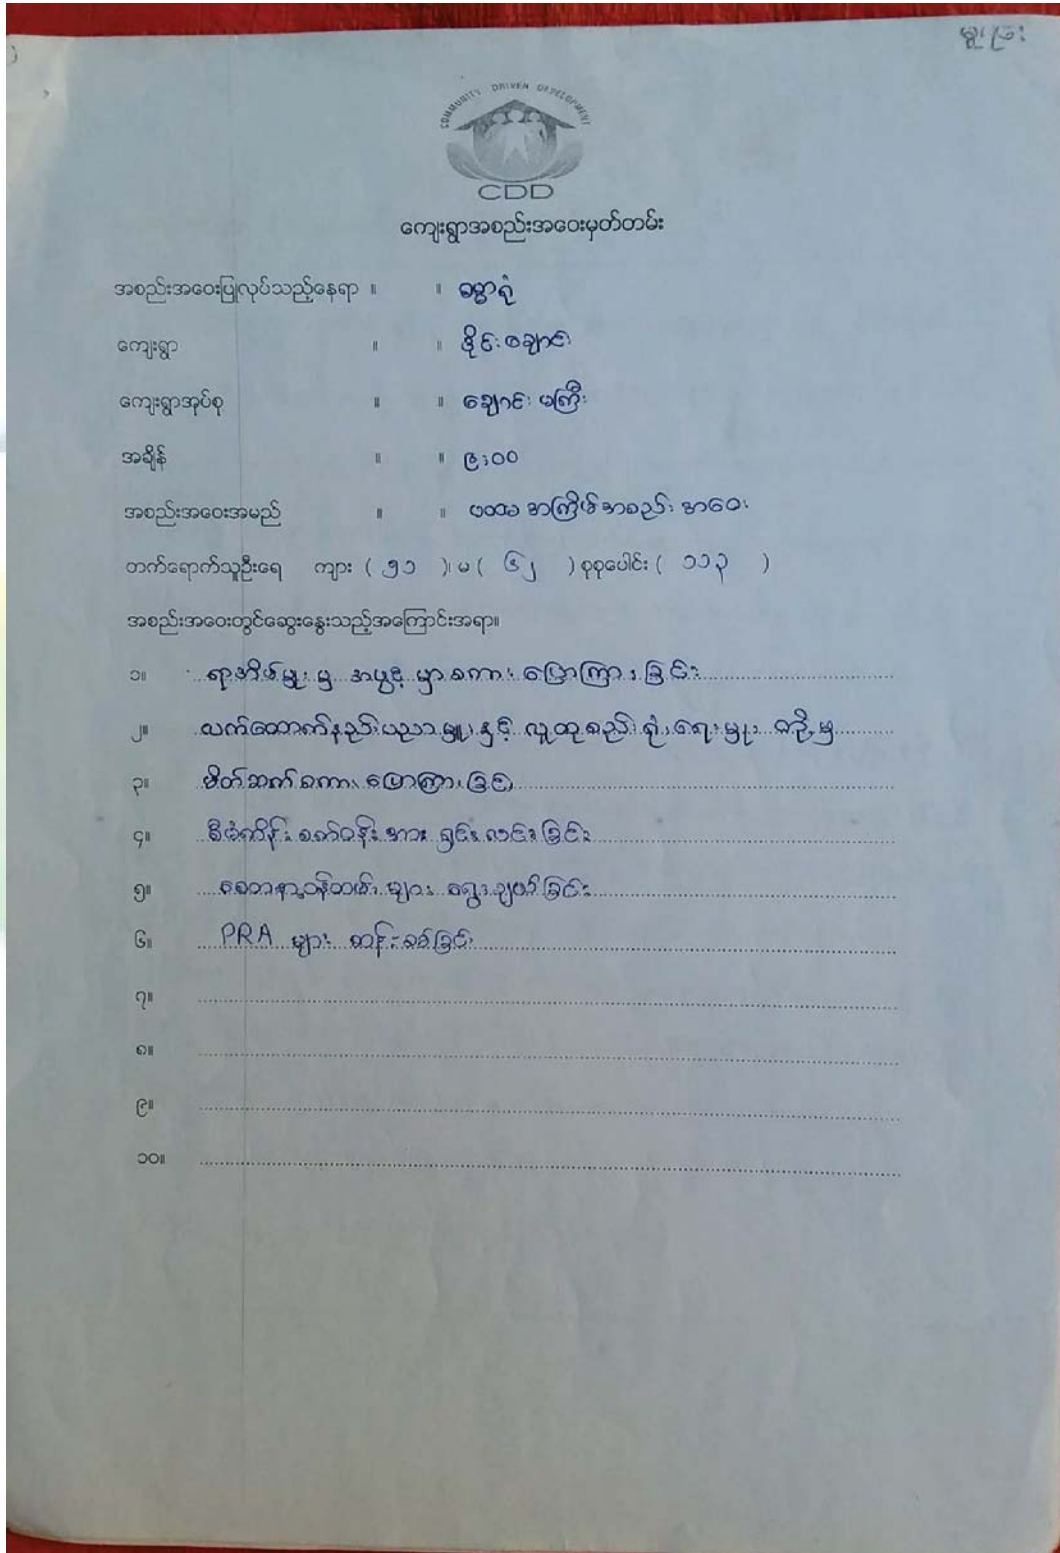 မူပြီး
COMMUNITY DRIVEN DEVELOPMENT
CDD
ကျေးရွာအစည်းအဝေးမှတ်တမ်း
အစည်းအဝေးပြုလုပ်သည့်နေရာ ။ ။ ဓမ္မာရုံ
ကျေးရွာ ။ ။ ဒိုင်းချောင်း
ကျေးရွာအုပ်စု ။ ။ ချောင်းမကြီး
အချိန် ။ ။ ၉:၀၀
အစည်းအဝေးအမည် ။ ။ ပထမအကြိမ်အစည်းအဝေး
တက်ရောက်သူဦးရေ ကျား ( ၅၁ )၊ မ ( ၆၂ ) စုစုပေါင်း ( ၁၁၃ )
အစည်းအဝေးတွင်ဆွေးနွေးသည့်အကြောင်းအရာ။
၁။ ရာအိမ်မှူးမှ အဖွင့် မှာစကားပြောကြားခြင်း
၂။ လက်ထောက်နည်းပညာမှူးနှင့် လူထုစည်းရုံးရေးမှူးတို့မှ
၃။ မိတ်ဆက်စကားပြောကြားခြင်း
၄။ စီမံကိန်းစက်ဝန်းအား ရှင်းလင်းခြင်း
၅။ စေတနာ့ဝန်ထမ်းများ ရွေးချယ်ခြင်း
၆။ PRA များ ဆန်းစစ်ခြင်း
၇။
၈။
၉။
၁၀။